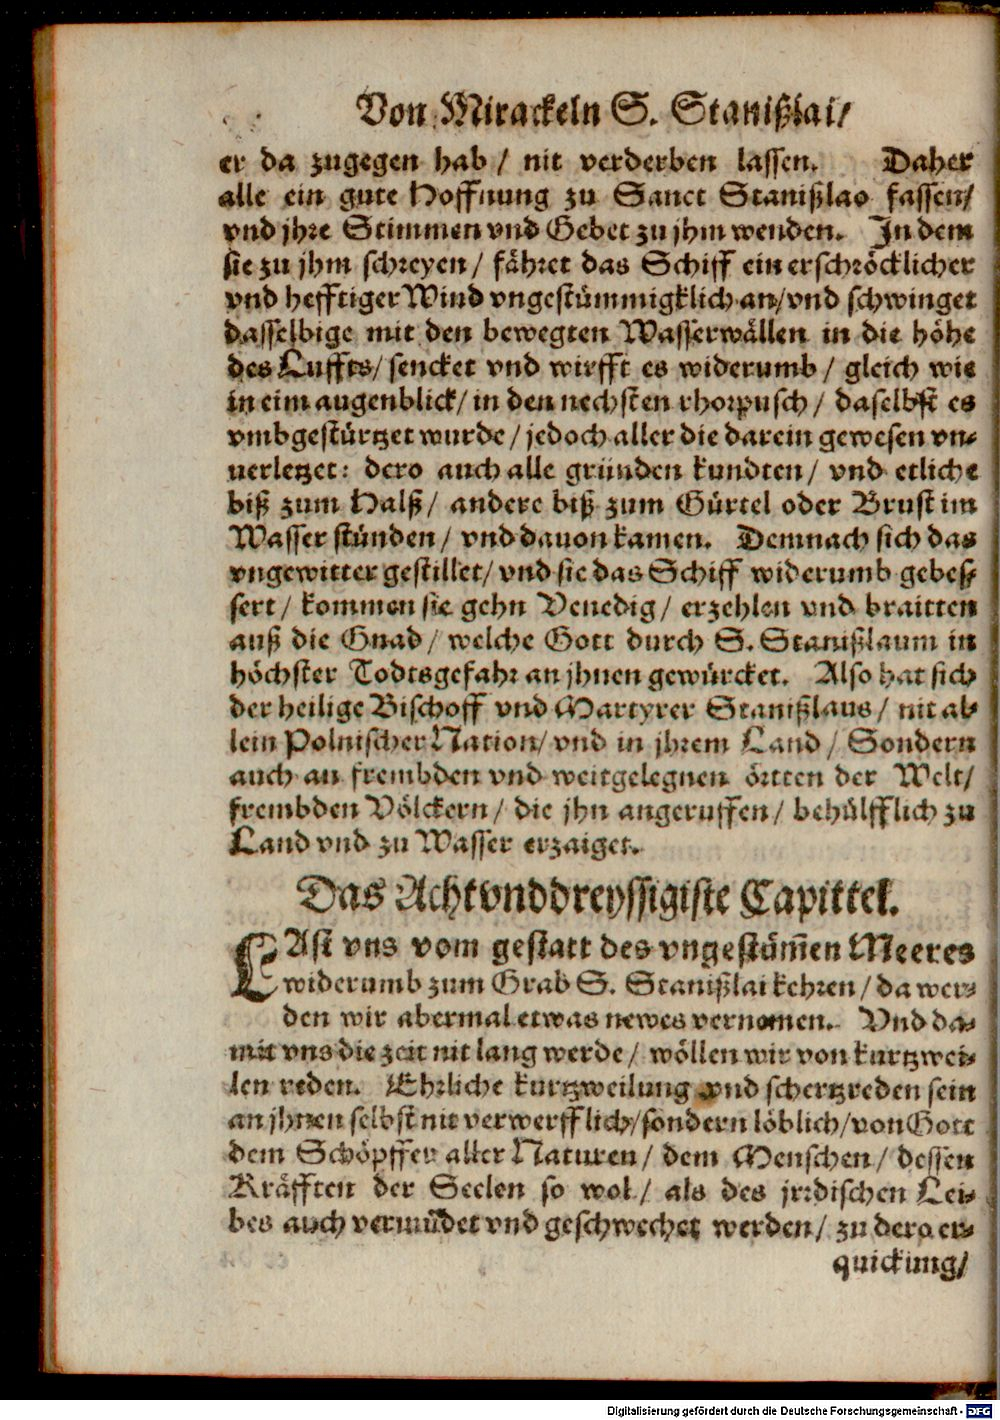 Von Mirackeln S. Stanißlai/
er da zugegen hab / nit verderben lassen. Daher
alle ein gute Hoffnung zu Sanct Stanißlao fassen/
vnd jhre Stimmen vnd Gebet zu jhm wenden. In dem
sie zu jhm schreyen / fähret das Schiff ein erschröcklicher
vnd hefftiger Wind vngestümmigklich an/ vnd schwinget
dasselbige mit den bewegten Wasserwällen in die höhe
des Luffts/ sencket vnd wirfft es widerumb / gleich wie
in eim augenblick/ in den nechsten rhorpusch / daselbst es
vmbgestürtzet wurde / jedoch aller die darein gewesen vn-
uerletzet: dero auch alle gründen kundten / vnd etliche
biß zum Halß/ andere biß zum Gürtel oder Brust im
Wasser stünden / vnd dauon kamen. Demnach sich das
vngewitter gestillet/ vnd sie das Schiff widerumb gebes-
sert / kommen sie gehn Venedig / erzehlen vnd braitten
auß die Gnad / welche Gott durch S. Stanißlaum in
höchster Todtsgefahr an jhnen gewürcket. Also hat sich
der heilige Bischoff vnd Martyrer Stanißlaus / nit al-
lein Polnischer Nation/ vnd in jhrem Land / Sondern
auch an frembden vnd weitgelegnen örtten der Welt/
frembden Völckern / die jhn angeruffen / behülfflich zu
Land vnd zu Wasser erzaiget.
Das Achtvnddreyssigiste Capittel.
LAst vns vom gestatt des vngestüm̃en Meeres
widerumb zum Grab S. Stanißlai kehren / da wer-
den wir abermal etwas newes vernomen. Vnd da-
mit vns die zeit nit lang werde / wöllen wir von kurtzwei-
len reden. Ehrliche kurtzweilung vnd schertzreden sein
an jhnen selbst nit verwerfflich/ sondern löblich/ von Gott
dem Schöpffer aller Naturen / dem Menschen / dessen
Kräfften der Seelen so wol / als des jrrdischen Lei-
bes auch vermüdet vnd geschwechet werden / zu dero er-
quickung/
Digitalisierung gefördert durch die Deutsche Forschungsgemeinschaft - DFG